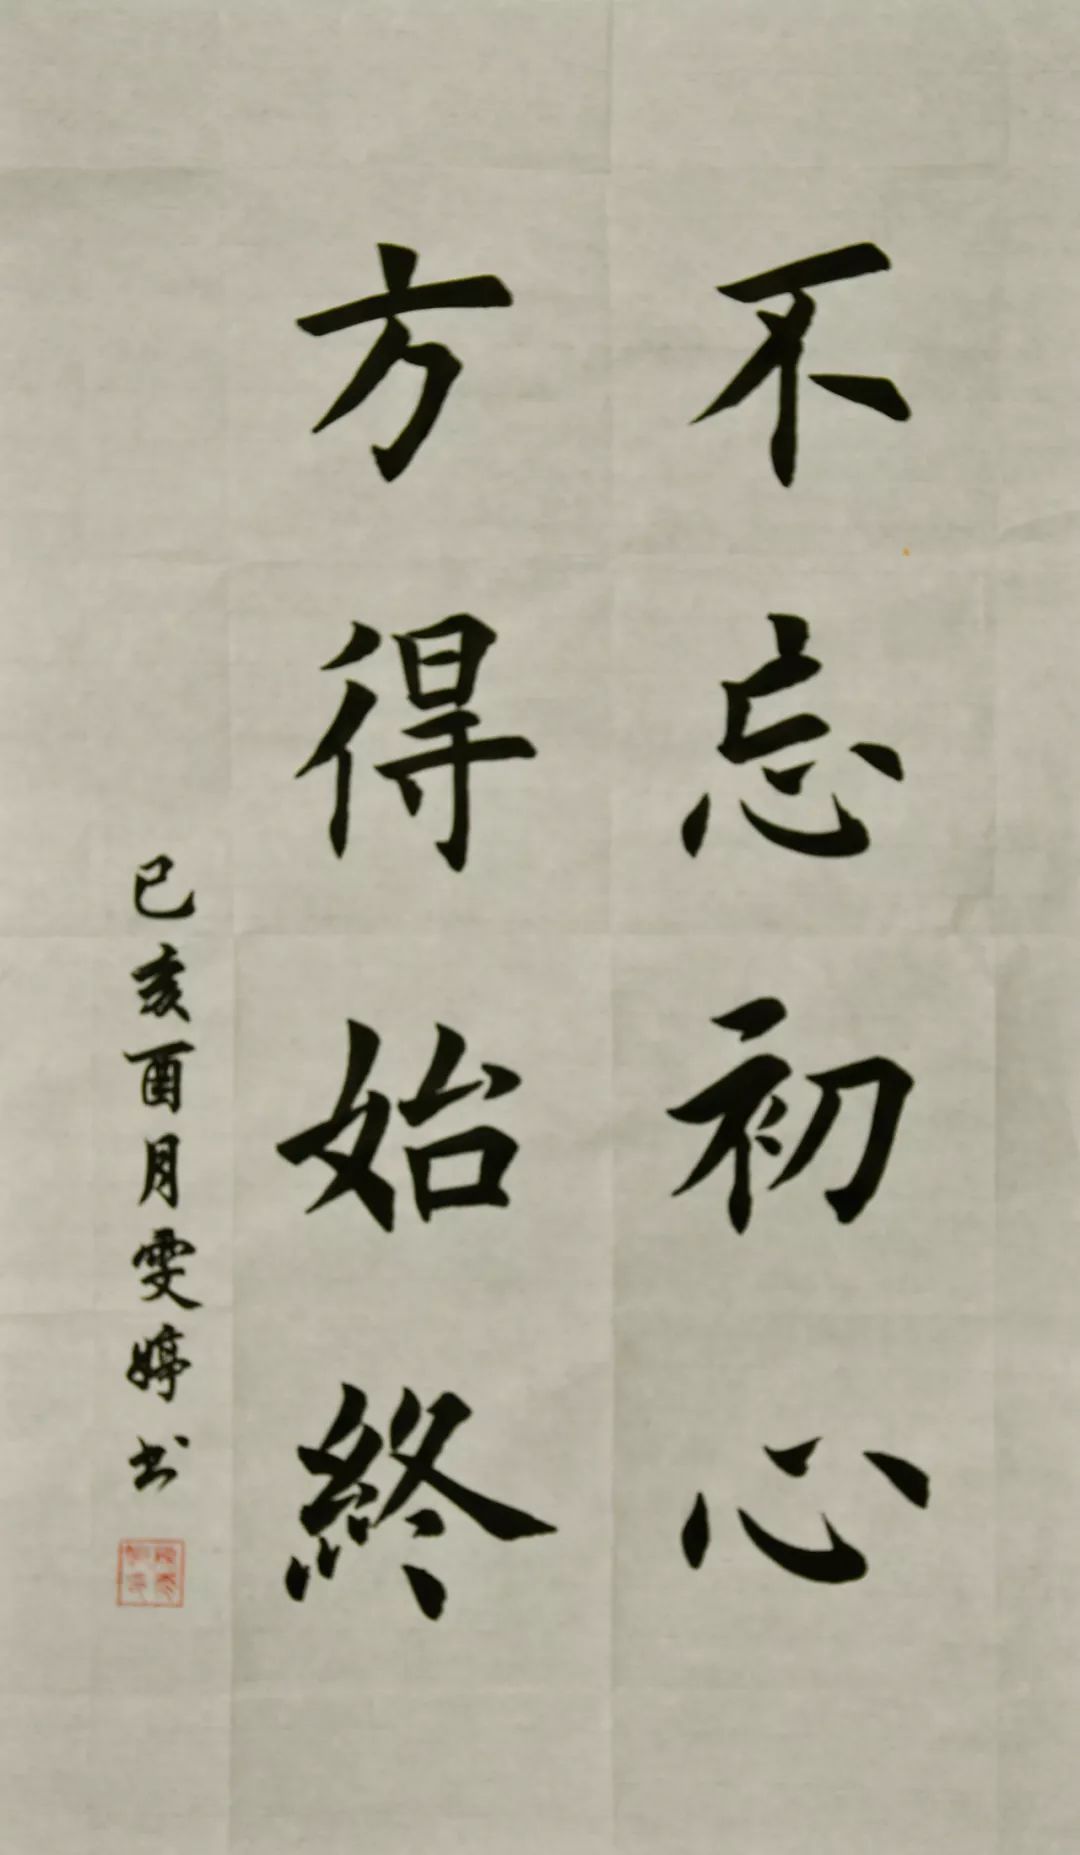 不忘初心
方得始终
己亥酉月雯婷书